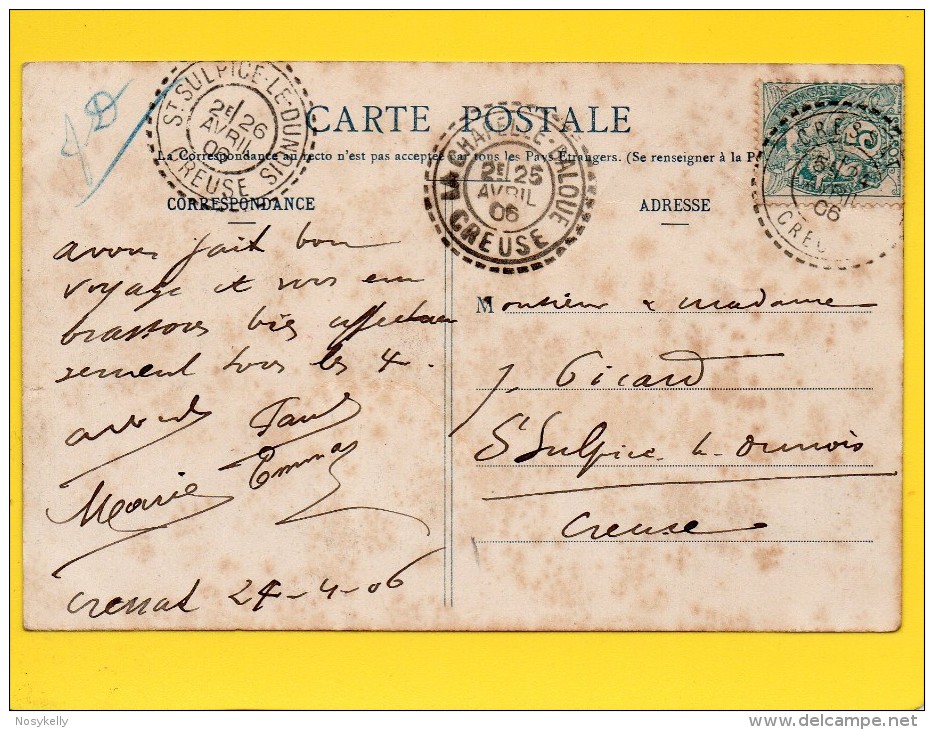 ST SULPICE-LE-DUNOIS
2E/26
AVRIL
06
CREUSE
CARTE POSTALE
La Correspondance au recto n'est pas acceptée par tous les Pays Etrangers. (Se renseigner à la P
LA CHAPELLE-BALOUE
2E/25
AVRIL
06
CREUSE
CRESS
06
CREU
CORRESPONDANCE
ADRESSE
avons fait bon
voyage et vous em
brassons bien affectueu
sement tous les 4.
Marie Emma
Cressat 24-4-06
Monsieur & madame
J. Picard
St Sulpice le Dunois
Creuse
Nosykelly
www.delcampe.net